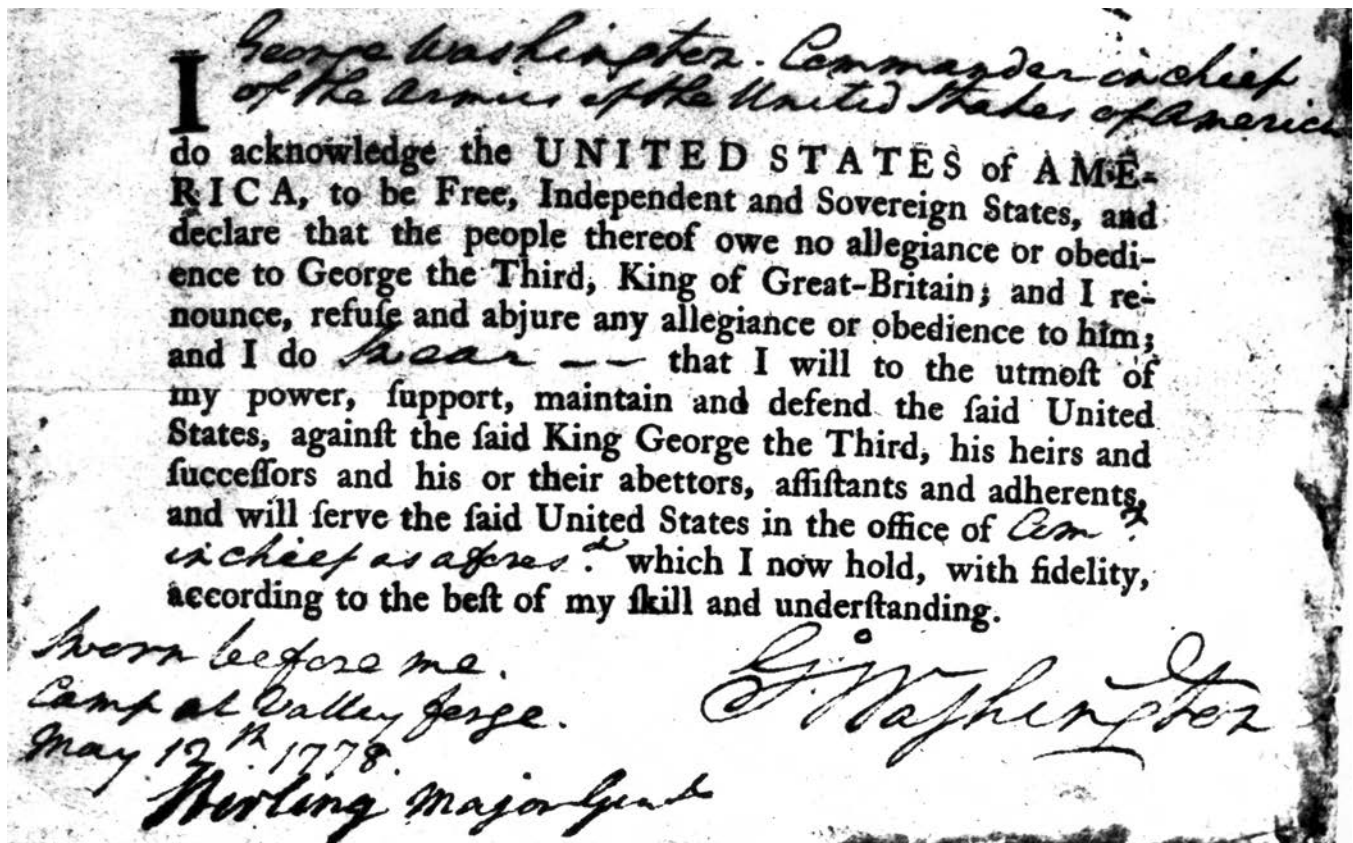 I George Washington. Commander in chief
of the Armies of the United States of America
do acknowledge the UNITED STATES of AME-
RICA, to be Free, Independent and Sovereign States, and
declare that the people thereof owe no allegiance or obedi-
ence to George the Third, King of Great-Britain; and I re-
nounce, refuſe and abjure any allegiance or obedience to him;
and I do Swear — — that I will to the utmoſt of
my power, ſupport, maintain and defend the ſaid United
States, againſt the ſaid King George the Third, his heirs and
ſucceſſors and his or their abettors, aſſiſtants and adherents,
and will ſerve the ſaid United States in the office of Com.r
in chief as afores.d which I now hold, with fidelity,
according to the beſt of my ſkill and underſtanding.
Sworn before me.
Camp at Valley forge.
May 12th 1778.
Stirling Major Genl
Go Washington